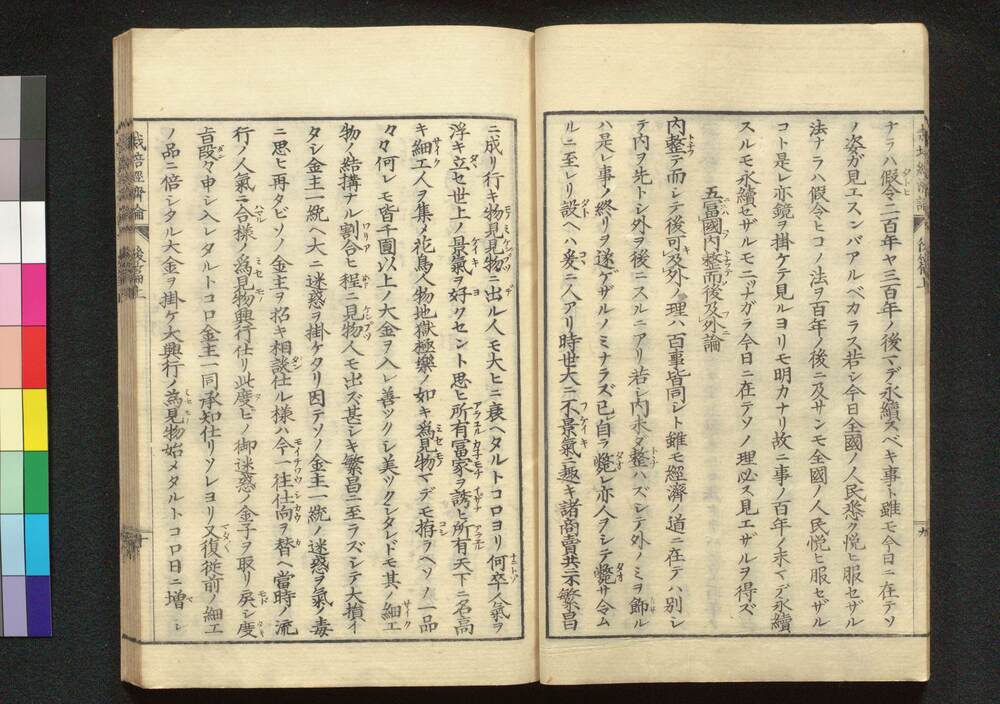 ナラハ假令二百年ヤ三百年ノ後マデ永續スベキ事ト雖モ今日ニ在テソ
ノ姿ガ見エズンバアルベカラス若シ今日全國ノ人民悉ク悦ヒ服セザル
法ナラハ假令ヒコノ法ヲ百年ノ後ニ及サンモ全國ノ人民悦ヒ服セザル
コト是レ亦鏡ヲ掛ケテ見ルヨリモ明カナリ故ニ事ノ百年ノ末マデ永續
スルモ永續セザルモニツナガラ今日ニ在テソノ理必ス見エザルヲ得ズ
五富國内整而後及外論
内整テ而シテ後可及外ノ理ハ百事皆同シト雖モ經濟ノ道ニ在テハ別シ
テ内ヲ先トシ外ヲ後ニスルニアリ若シ内未タ整ハズシテ外ノミヲ飾ル
ハ是レ事ノ終リヲ遂ゲザルノミナラズ已レ自ラ斃レ亦人ヲシテ斃サ令ム
ルニ至レリ設ヘハ爰ニ人アリ時世大ニ不景氣ニ趣キ諸商賣共ニ不繁昌
ニ成リ行キ物見見物ニ出ル人モ大ヒニ衰ヘタルトコロヨリ何卒人氣ヲ
浮キ立セ世上ノ景氣ヲ好クセント思ヒ所有富家ヲ誘ヒ所有天下ニ名高
キ細工人ヲ集メ花鳥人物地獄極樂ノ如キ爲見物マデモ拵ラヘソノ一品
々々何レモ皆千圓以上ノ大金ヲ入レ善ツクシ美ツクシタレドモ其ノ細工
物ノ結搆ナル割合ヒ程ニ見物人モ出ズ甚シキ繁昌ニ至ラズシテ大損イ
タシ金主一統ヘ大ニ迷惑ヲ掛ケタリ因テソノ金主一統ノ迷惑ヲ氣ノ毒
ニ思ヒ再タビソノ金主ヲ招キ相談仕ル様ハ今一往仕向ヲ替ヘ當時ノ流
行ノ人氣ニ合様ノ爲見物興行仕リ此度ヒノ御迷惑ノ金子ヲ取リ戻シ度
旨段々申シ入レタルトコロ金主一同承知仕リソレヨリ又復從前ノ細工
ノ品ニ倍シタル大金ヲ掛ケ大興行ノ爲見物始メタルトコロ日ニ増シ
栽培經濟論
後篇上
九
十